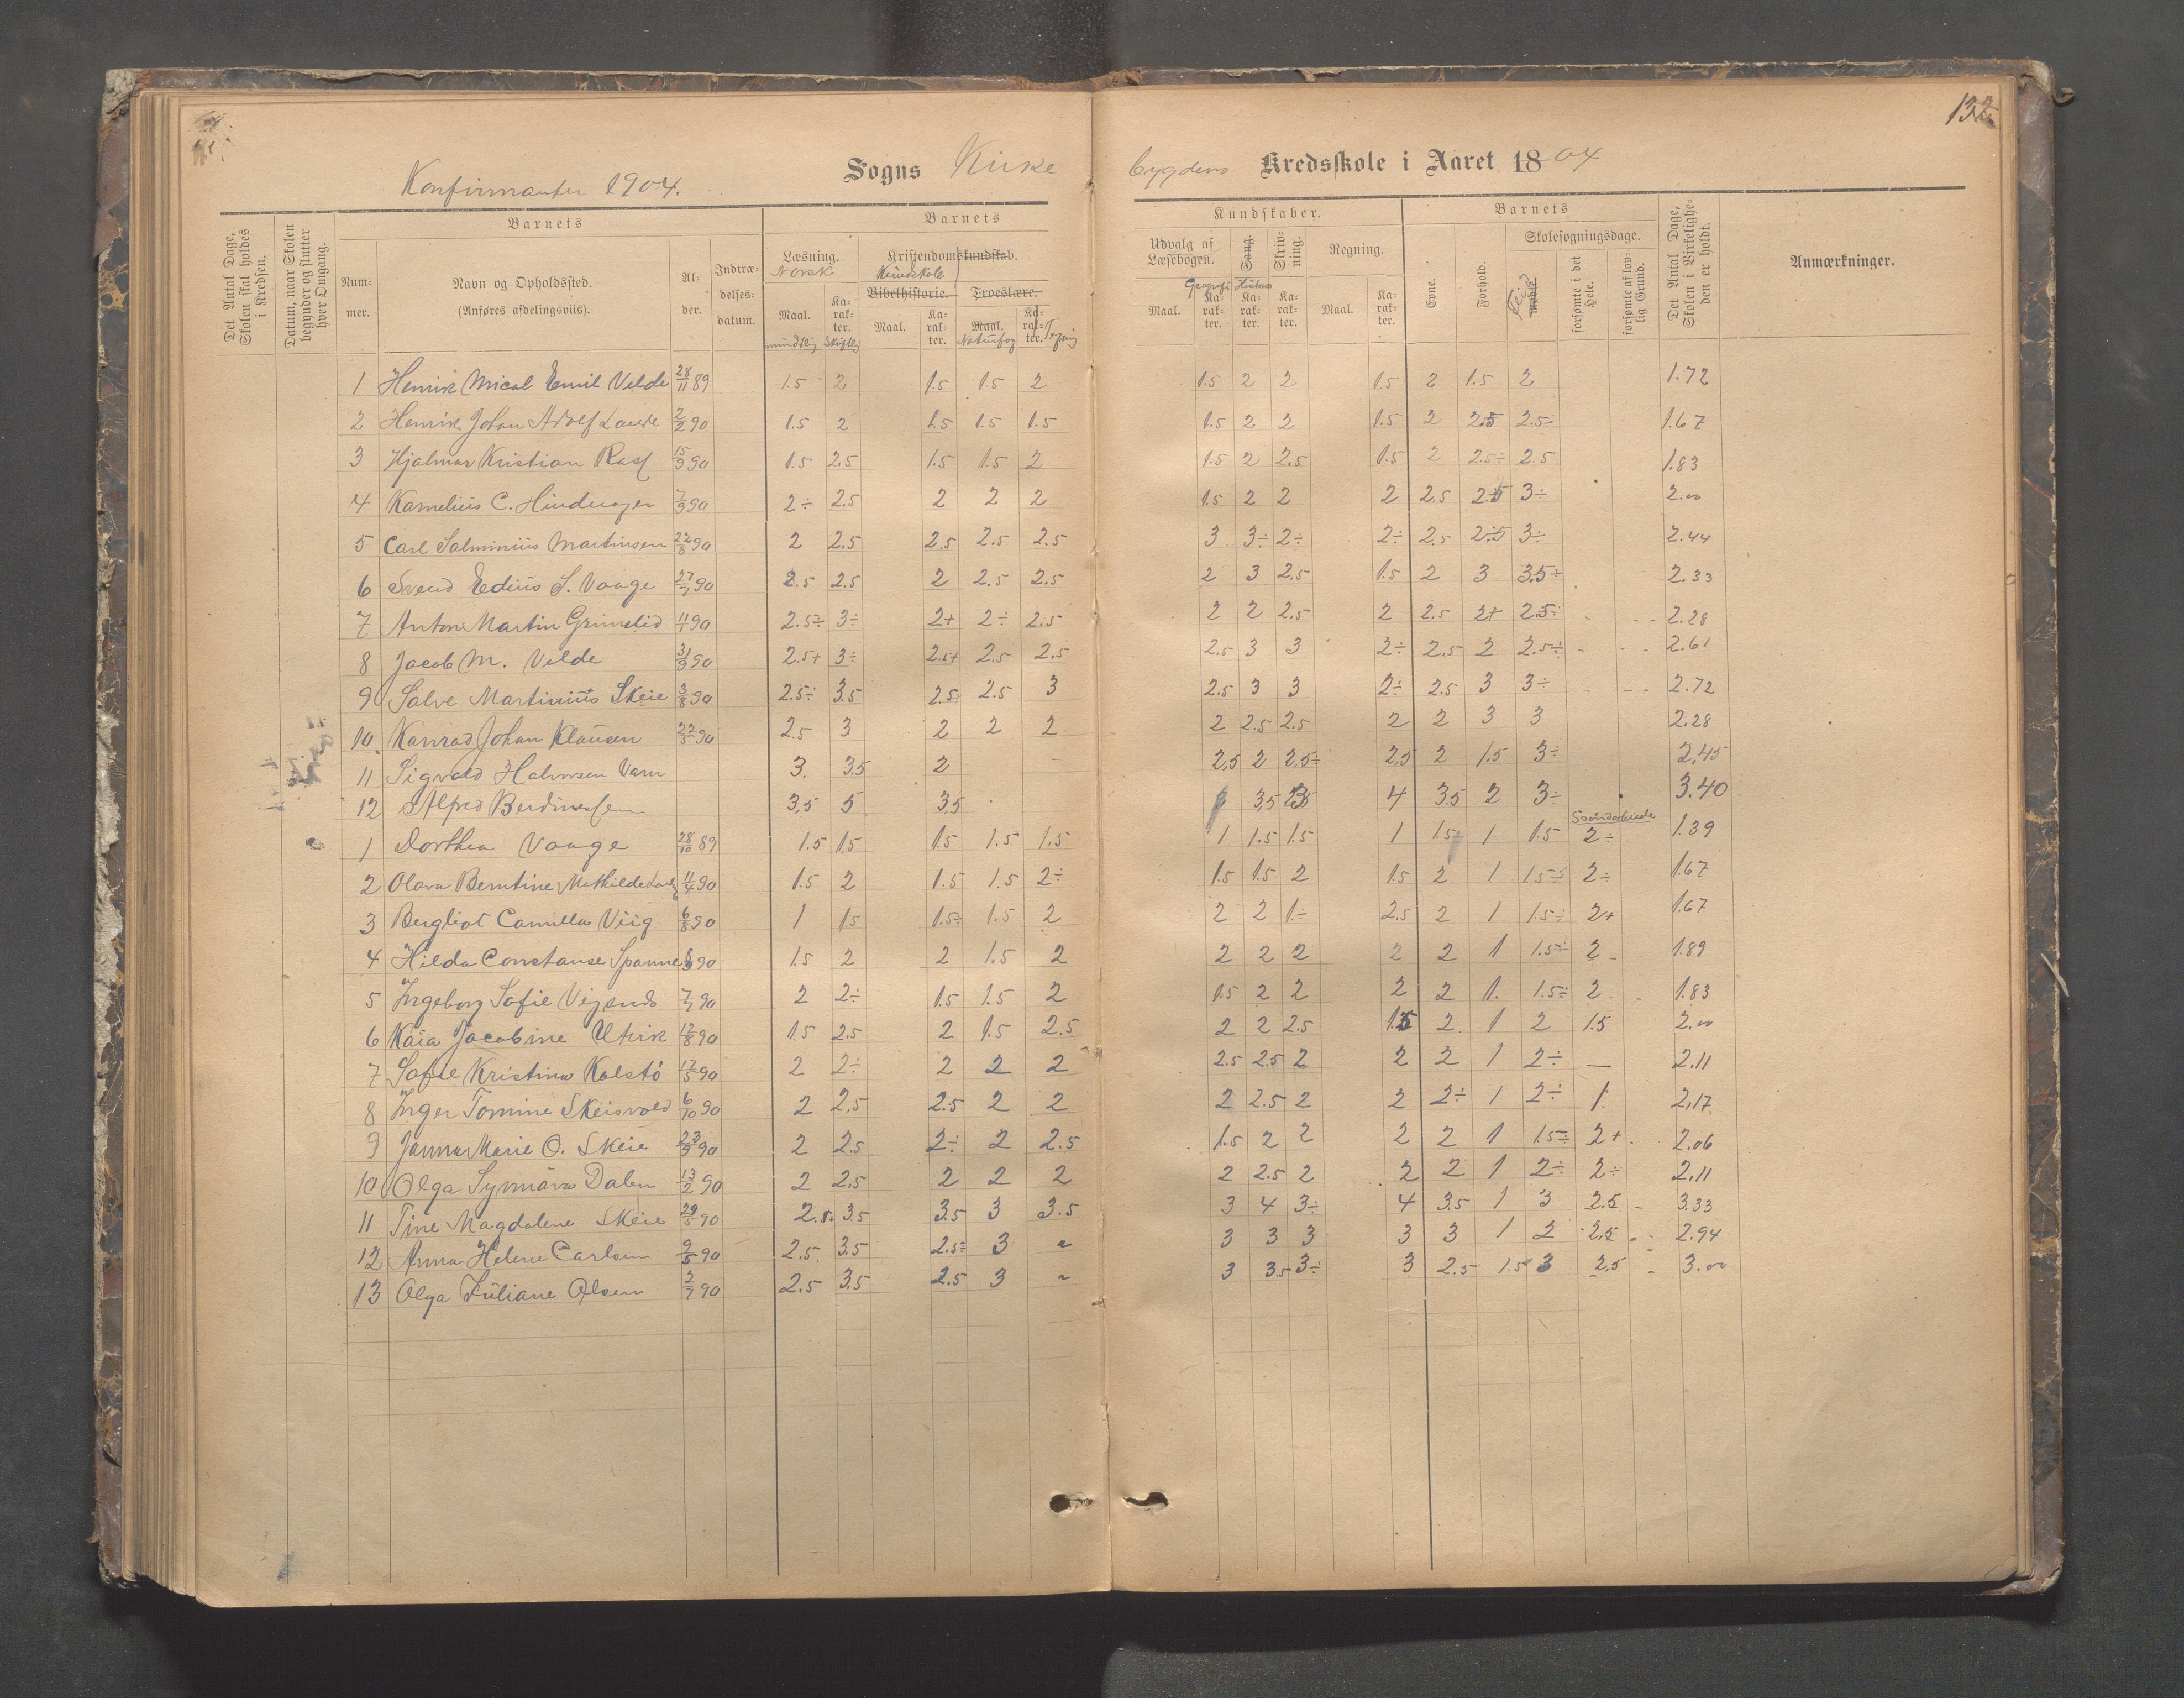 132
Konfirmanter 1904. Sogns Kirke bygdens Kredsskole i Aaret 18 04
Det Antal Dage, Skolen skal holdes i Kredsen.
Datum, naar Skolen begynder og slutter hver Omgang.
Barnets
Nummer.
Navn og Opholdssted.
(Anføres afdelingsviis).
Alder.
Indtrædelsesdatum.
Barnets
Læsning. Norsk
Maal. mundtlig
Karakter. Skriftlig
Kristendomskundskab.
Bibelhistorie. Troeslære.
Maal. Karakter. Maal. Naturfag Karakter. Tegning
Kundskaber.
Udvalg af Læsebogen. Sang. Skrivning. Regning.
Maal. Geografi Karakter. Historie Karakter. Karakter. Maal. Karakter.
Barnets
Evne. Forhold. Skolesøgningsdage.
mødte. Flid
forsømte i det Hele.
forsømte af lovlig Grund.
Det Antal Dage, Skolen i Virkeligheden er holdt.
Anmærkninger.
1 Henrik Mical Emil Velde 28/11 89 1.5 2 1.5 1.5 2 1.5 2 2 1.5 2 1.5 2 1.72
2 Henrik Johan Adolf 2/2 90 1.5 2 1.5 1.5 1.5 1.5 2 2 1.5 2 2.5 2.5÷ 1.67
3 Hjalmar Kristian 15/9 90 1.5 2.5 1.5 1.5 2 1.5 2 2.5 1.5 2 2.5÷ 2.5 1.83
4 Kornelius C. 7/9 90 2÷ 2.5 2 2 2 1.5 2 2 2 2.5 2.5 3÷ 2.00
5 Carl Salminius Martinsen 22/8 90 2 2.5 2.5 2.5 2.5 3 3÷ 2÷ 2÷ 2.5 2.5 3÷ 2.44
6 Svend Edius S. Vaage 27/7 90 2.5 2.5 2 2.5 2.5 2 3 2.5 1.5 2 3 3.5÷ 2.33
7 Anton Martin Grinnelid 11/1 90 2.5÷ 3÷ 2+ 2÷ 2.5 2 2 2.5 2 2.5 2+ 2.5÷ 2.28
8 Jacob M. Velde 31/3 90 2.5+ 3÷ 2.5+ 2.5 2.5 2.5 3 3 2÷ 2.5 2 2.5÷ 2.61
9 Salve Martinius Skeie 3/8 90 2.5÷ 3.5 2.5 2.5 3 2.5 3 3 2÷ 2.5 3 3÷ 2.72
10 Konrad Johan Klausen 22/5 90 2.5 3 2 2 2 2 2.5 2.5 2 2 3 3 2.28
11 Sigvald Halvorsen 3. 3.5 2 2,5 2 2,5÷ 2,5 2 1.5 3÷ 2,45
12 Alfred 3,5 5 3,5 3,5 4 3.5 2 3÷ 3.40
1 Dorthea Vaage 28/10 89 1.5 1.5 1.5 1.5 1.5 1 1.5 1.5 1 1.5 1 1.5 2÷ 1.39
2 Olava Berntine Mathilde 11/4 90 1.5 2 1.5 1.5 2÷ 1.5 1.5 2 1.5 2 1 1.5÷ 2÷ 1.67
3 Bergliot Camilla Viig 6/8 90 1 1.5 1.5÷ 1.5 2 2 2 1÷ 2.5 2 1 1.5÷ 2+ 1.67
4 Hilda Constanse Spanne 90 1.5 2 2 1.5 2 2 2 2 2 2 1 1.5÷ 2 1.89
5 Ingeborg Sofie 7/7 90 2 2÷ 1.5 1.5 2 1.5 2 2 2 2 1. 1.5÷ 2. 1.83
6 Kaia Jacobine Utvik 12/8 90 1.5 2.5 2 1.5 2.5 2 2 2.5 1.5 2 1 2 1.5 2.00
7 Sofie Kristina Kalstö 17/5 90 2 2÷ 2 2 2 2.5 2.5 2 2 2 1 2÷ — 2.11
8 Inger Tomine Skeisvold 6/10 90 2 2,5 2.5 2 2 2 2.5 2 2 2÷ 1 2÷ 1. 2,17
9 Janna Marie O. Skeie 23/9 90 2 2.5 2÷ 2 2.5 1.5 2 2 2 2 1 1.5÷ 2+ 2.06
10 Olga Synnöva Dalen 13/2 90 2 2.5 2 2 2 2 2.5 2 2 2 1 2÷ 2÷ 2,11
11 Tine Magdalene Skeie 29/5 90 2.5. 3.5 3.5 3 3.5 3 4 3÷ 4 3.5 1 3 2.5 3.33
12 Anna Helene Carlsen 9/5 90 2.5. 3.5 2.5÷ 3 ~ 3 3 3 3 3 1 2 2,5 2.94
13 Olga Juliane Olsen 2/7 90 2.5 3.5 2.5 3 ~ 3 3.5 3÷ 3 2.5 1.5 3 2,5 3.00